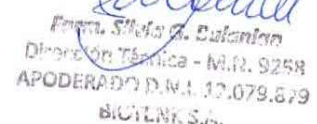 Farm. Silvia G. Balanian
Dirección Técnica - M.N. 9258
APODERADO D.N.I. 12.079.679
BIOTENK S.A.